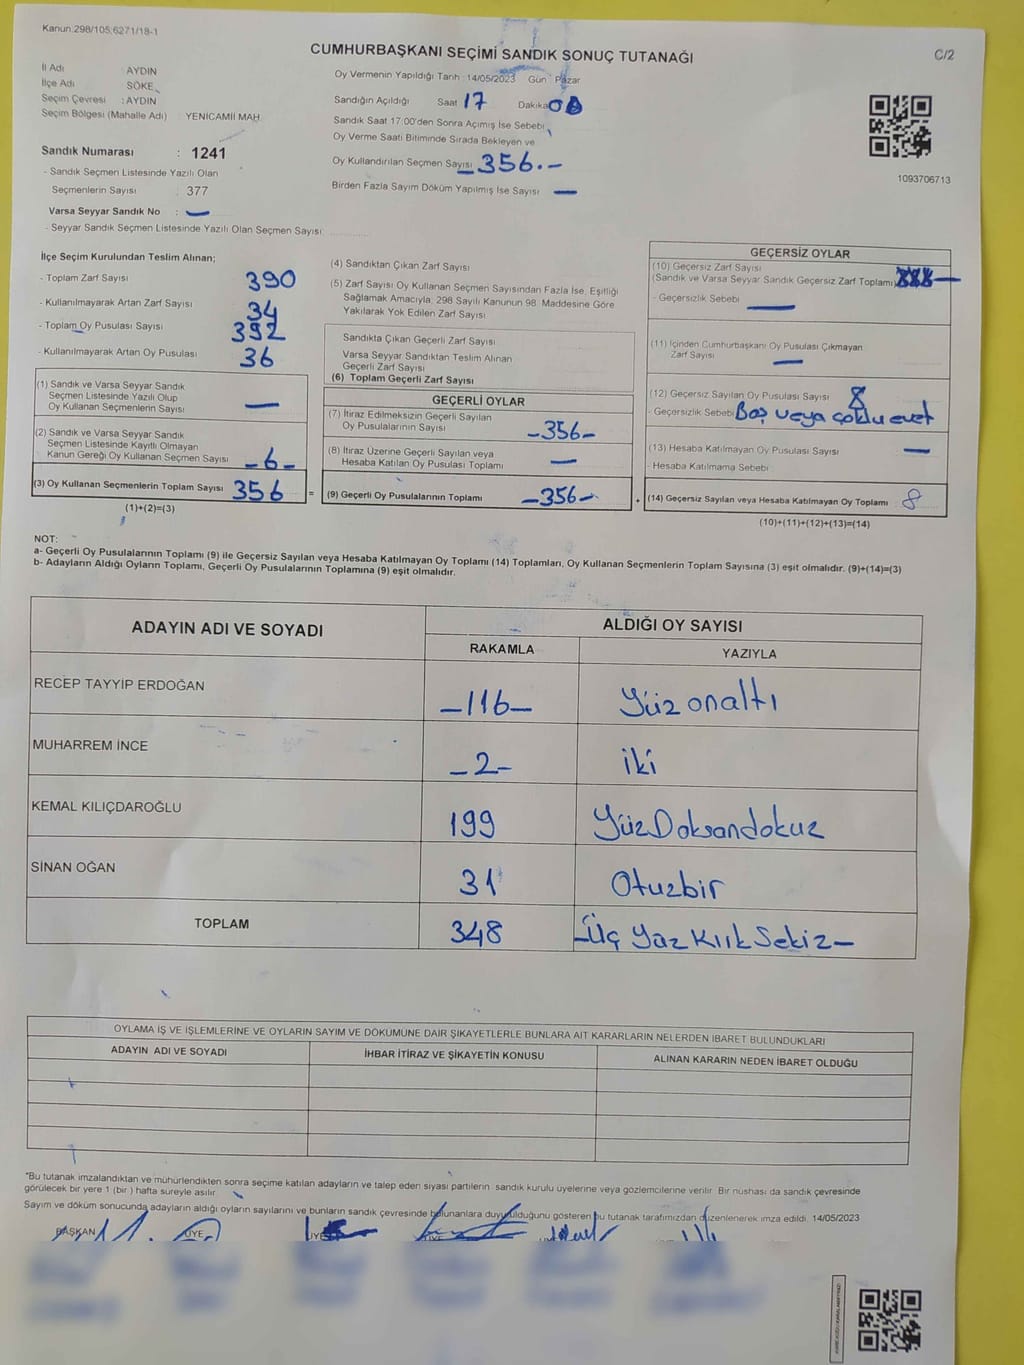 Kanun:298/105;6271/18-1
CUMHURBAŞKANI SEÇİMİ SANDIK SONUÇ TUTANAĞI
C/2
İl Adı : AYDIN
İlçe Adı : SÖKE
Seçim Çevresi : AYDIN
Seçim Bölgesi (Mahalle Adı) : YENİCAMİİ MAH.
Sandık Numarası : 1241
- Sandık Seçmen Listesinde Yazılı Olan
Seçmenlerin Sayısı : 377
Varsa Seyyar Sandık No : —
- Seyyar Sandık Seçmen Listesinde Yazılı Olan Seçmen Sayısı:
Oy Vermenin Yapıldığı Tarih :14/05/2023 Gün : Pazar
Sandığın Açıldığı Saat 17 Dakika 00
Sandık Saat 17:00'den Sonra Açımış İse Sebebi
Oy Verme Saati Bitiminde Sırada Bekleyen ve
Oy Kullandırılan Seçmen Sayısı 356.-
Birden Fazla Sayım Döküm Yapılmış İse Sayısı —
1093706713
İlçe Seçim Kurulundan Teslim Alınan;
- Toplam Zarf Sayısı 390
- Kullanılmayarak Artan Zarf Sayısı 34
- Toplam Oy Pusulası Sayısı 392
- Kullanılmayarak Artan Oy Pusulası 36
(1) Sandık ve Varsa Seyyar Sandık
Seçmen Listesinde Yazılı Olup
Oy Kullanan Seçmenlerin Sayısı —
(2) Sandık ve Varsa Seyyar Sandık
Seçmen Listesinde Kayıtlı Olmayan
Kanun Gereği Oy Kullanan Seçmen Sayısı -6-
(3) Oy Kullanan Seçmenlerin Toplam Sayısı 356
(1)+(2)=(3)
(4) Sandıktan Çıkan Zarf Sayısı
(5) Zarf Sayısı Oy Kullanan Seçmen Sayısından Fazla İse, Eşitliği
Sağlamak Amacıyla; 298 Sayılı Kanunun 98. Maddesine Göre
Yakılarak Yok Edilen Zarf Sayısı
Sandıkta Çıkan Geçerli Zarf Sayısı
Varsa Seyyar Sandıktan Teslim Alınan
Geçerli Zarf Sayısı
(6) Toplam Geçerli Zarf Sayısı
GEÇERLİ OYLAR
(7) İtiraz Edilmeksizin Geçerli Sayılan
Oy Pusulalarının Sayısı -356-
(8) İtiraz Üzerine Geçerli Sayılan veya
Hesaba Katılan Oy Pusulası Toplamı —
= (9) Geçerli Oy Pusulalarının Toplamı -356-
GEÇERSİZ OYLAR
(10) Geçersiz Zarf Sayısı
(Sandık ve Varsa Seyyar Sandık Geçersiz Zarf Toplamı) —
- Geçersizlik Sebebi —
(11) İçinden Cumhurbaşkanı Oy Pusulası Çıkmayan
Zarf Sayısı —
(12) Geçersiz Sayılan Oy Pusulası Sayısı 8
- Geçersizlik Sebebi Boş veya çoklu evet
(13) Hesaba Katılmayan Oy Pusulası Sayısı —
- Hesaba Katılmama Sebebi
+ (14) Geçersiz Sayılan veya Hesaba Katılmayan Oy Toplamı 8
(10)+(11)+(12)+(13)=(14)
NOT:
a- Geçerli Oy Pusulalarının Toplamı (9) ile Geçersiz Sayılan veya Hesaba Katılmayan Oy Toplamı (14) Toplamları, Oy Kullanan Seçmenlerin Toplam Sayısına (3) eşit olmalıdır. (9)+(14)=(3)
b- Adayların Aldığı Oyların Toplamı, Geçerli Oy Pusulalarının Toplamına (9) eşit olmalıdır.
ADAYIN ADI VE SOYADI ALDIĞI OY SAYISI
RAKAMLA YAZIYLA
RECEP TAYYİP ERDOĞAN -116- Yüz onaltı
MUHARREM İNCE -2- iki
KEMAL KILIÇDAROĞLU 199 YüzDoksandokuz
SİNAN OĞAN 31 Otuzbir
TOPLAM 348 -Üç Yüz Kırk Sekiz-
OYLAMA İŞ VE İŞLEMLERİNE VE OYLARIN SAYIM VE DÖKÜMÜNE DAİR ŞİKAYETLERLE BUNLARA AİT KARARLARIN NELERDEN İBARET BULUNDUKLARI
ADAYIN ADI VE SOYADI İHBAR İTİRAZ VE ŞİKAYETİN KONUSU ALINAN KARARIN NEDEN İBARET OLDUĞU
*Bu tutanak imzalandıktan ve mühürlendikten sonra seçime katılan adayların ve talep eden siyasi partilerin sandık kurulu üyelerine veya gözlemcilerine verilir. Bir nüshası da sandık çevresinde
görülecek bir yere 1 (bir) hafta süreyle asılır.
Sayım ve döküm sonucunda adayların aldığı oyların sayılarını ve bunların sandık çevresinde bulunanlara duyurulduğunu gösteren bu tutanak tarafımızdan düzenlenerek imza edildi. 14/05/2023
BAŞKAN ÜYE ÜYE ÜYE